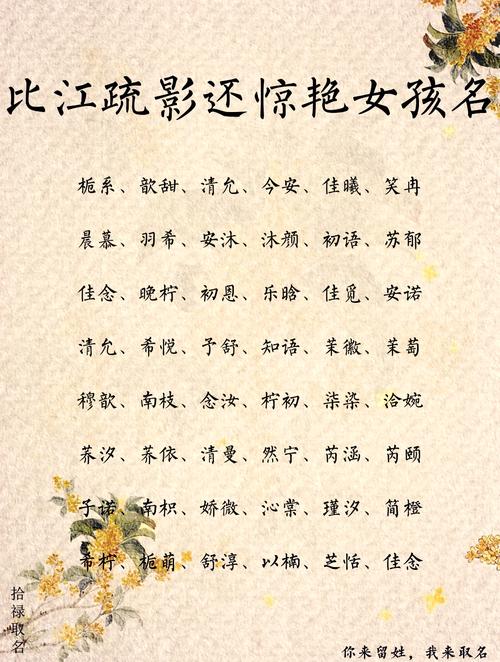 比江疏影还惊艳女孩名
栀系、歆甜、清允、今安、佳曦、笑冉
晨慕、羽希、安沐、沐颜、初语、苏郁
佳念、晚柠、初恩、乐晗、佳觅、安诺
清允、希悦、予舒、知语、茉徽、茉萄
穆歆、南枝、念汝、柠初、柒染、洽婉
荞汐、荞依、清曼、然宁、芮涵、芮颐
子诺、南枳、娇微、沁棠、瑾汐、简橙
希柠、栀萌、舒淳、以楠、芝恬、佳念
拾禄取名
你来留姓，我来取名